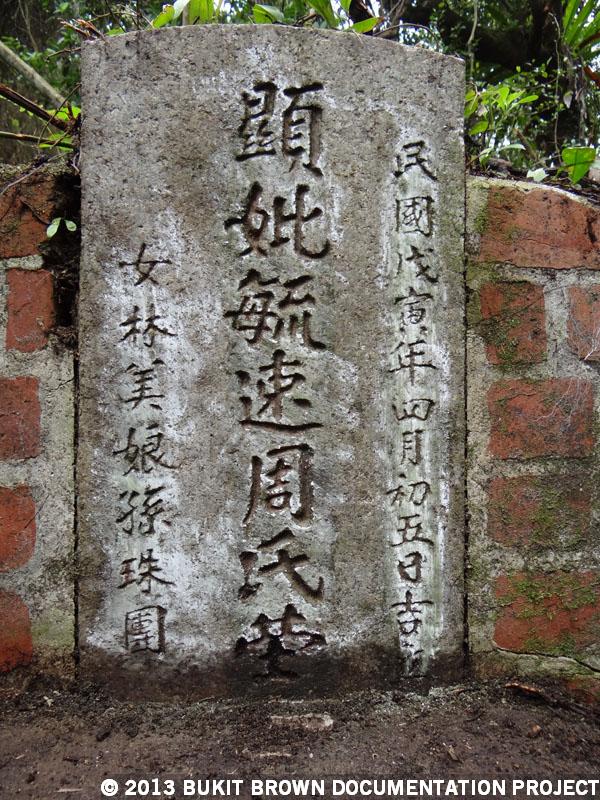 民國戊寅年四月初五日吉立
顯妣毓速周氏茔
女林美娘孫珠圍
© 2013 BUKIT BROWN DOCUMENTATION PROJECT